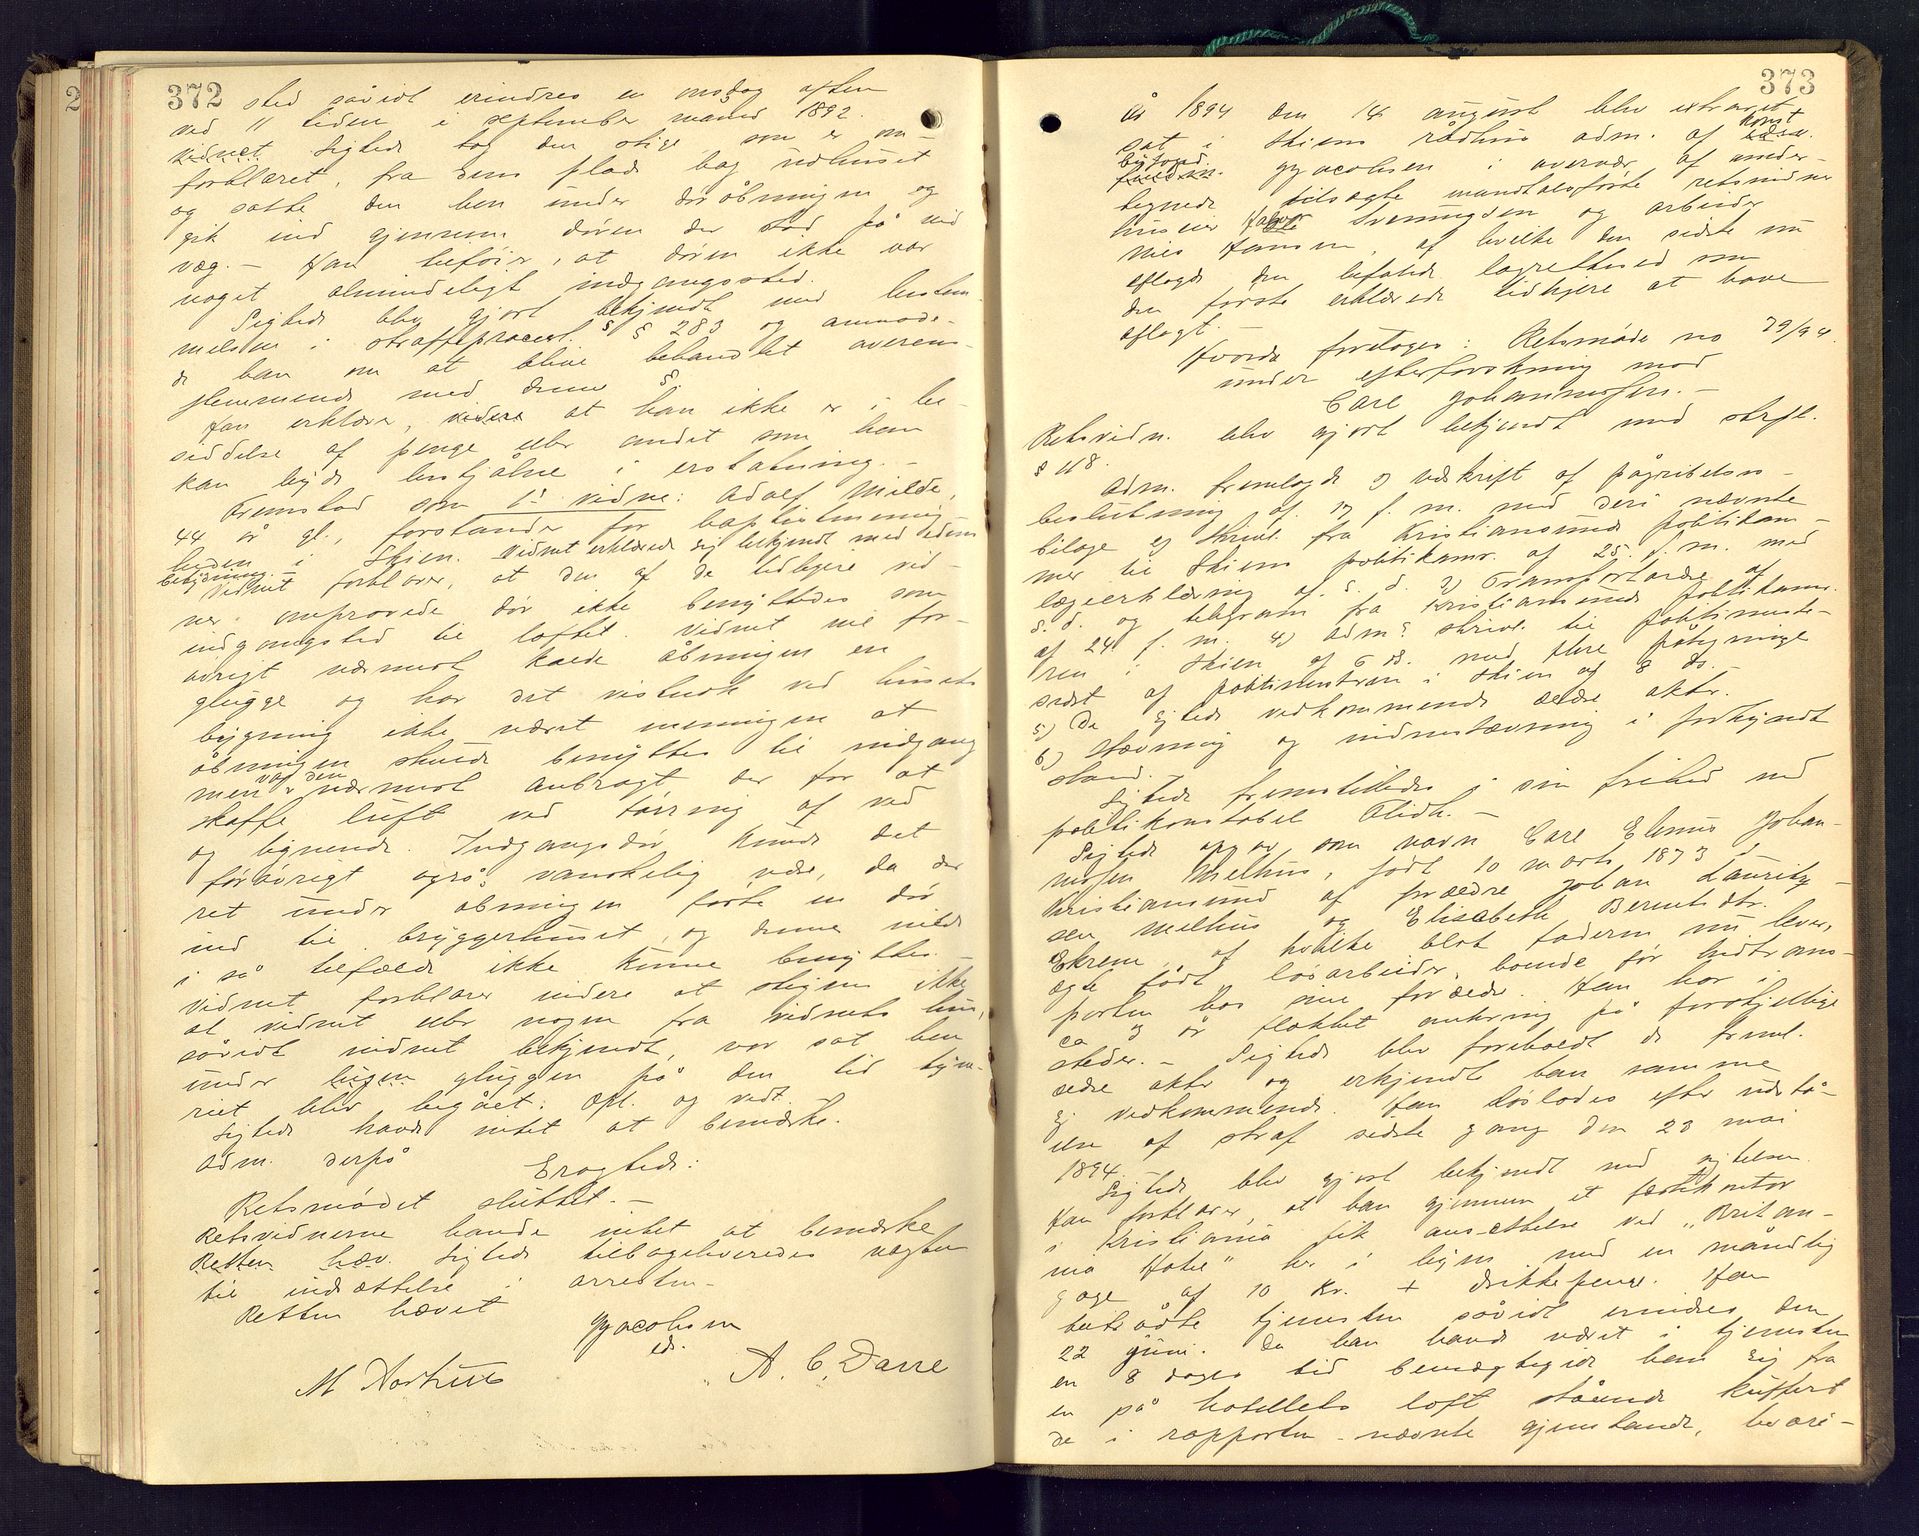 372
sted såvidt erindres en onsdag aften
ved 11 tiden i september måned 1892.
vidnet Sigtede tog den stige, som er om-
forklaret, fra sin plads bag udhuset
og satte den hen under døråbningen og
gik ind gjennem døren der stod på vid
væg. – Han tilføier, at døren ikke var
noget almindeligt indgangssted.
Sigtede blev gjort bekjendt med bestem-
melsen i straffeprocesl. § 283 og anmode-
de han om at blive behandlet overens-
stemmende med denne §.
Han erklærer, videre at han ikke er i be-
siddelse af penge eller andet som han
kan byde bestjålne i erstatning. –
Fremstod som 1ste vidne: Adolf Milde,
44 år gl., forstander for baptistmenig-
heden i Skien. Vidnet erklærede sig bekjendt med edens
betydning. –
Vidnet forklarer, at den af de tidligere vid-
ner omprovede dør ikke benyttedes som
indgangsted til loftet. Vidnet vil for-
øvrigt nærmest kalde åbningen en
glugge og har det vistnok ved husets
bygning ikke været meningen at
åbningen skulde benyttes til indgang
men var den nærmest anbragt der for at
skaffe luft ved tørring af ved
og lignende. Indgangsdør kunde det
forøvrigt også vanskelig være, da der
ret under åbningen førte en dør
ind til bryggerhuset, og denne vilde
i så tilfælde ikke kunne benyttes. –
Vidnet forklarer videre at stigen ikke
at vidnet eller nogen fra vidnets hus,
såvidt vidnet bekjendt, var sat hen
under lugen gluggen på den tid tyve-
riet blev begået. Opl. og vedt.
Sigtede havde intet at bemærke.
Adm. derpå
Eragtede:
Retsmødet sluttet. –
Retsvidnerne havde intet at bemærke
Retten hæv. Sigtede tilbageleveredes vagten
til indsættelse i arresten –
Retten hævet
GJacobsen
cst.
M Aarhus
A. C. Darre
373
År 1894 den 14 august blev extraret
sat i Skiens rådhus adm. af konst
byfogd. GJacobsen i overvær af under-
tegnede tilsagte mandtalsførte retsvidner
huseier Halvor Svenungsen og arbeider
Nies Hansen, af hvilke den sidste nu
aflagde den befalede lagrettesed mens
den første erklærede tidligere at have
aflagt.
Hvorda foretoges: Retsmøde no 79/94.
under efterforskning mod
Carl Johannessen. –
Retsvidn. blev gjort bekjendt med strfl.
§ 118.
Adm. fremlagde 1) udskrift af pågribelses-
beslutning af 19 f. m. med deri nævnte
bilage 2) Skriv. fra Kristiansunds politikam-
mer til Skiens politikamr. af 25. f. m. med
lægeerklæring af s. d. 3) Transportordre af
s. d. og telegram fra Kristiansunds politikamr.
af 24 f. m. 4) Adms skriv. til politimeste-
ren i Skien af 6 ds. med flere påtegninger
sidst af politimesteren i Skien af 8 ds. –
5) De Sigtede vedkommende ældre akter.
6) Stævning og vidnestævning i forkyndt
stand.
Sigtede fremstilledes i sin frihed ved
politikonstabel Olidh. –
Sigtede opgav som navn Carl Elenus Johan-
nessen Melhus, født 10 marts 1873 i
Kristiansund af forældre Johan Lauritz-
sen Melhus og Elisabeth Berntsdtr.
Ekrem, af hvilke blot faderen nu lever,
ægte født løsarbeider, boende før hidtrans-
porten hos sine forældre. Han har i
ca 3 år flakket omkring på forskjellige
steder. – Sigtede blev foreholdt de freml.
ældre akter og erkjendte han samme
sig vedkommende. Han løslodes efter udstå-
else af straf sidste gang den 23 mai
1894.
Sigtede blev gjort bekjendt med sigtelsen.
Han forklarer, at han gjennem et fæstekontor
i Kristiania fik ansættelse ved „Britan-
nia Hotel" her i byen med en månedlig
gage af 10 kr. + drikkepenge. Han
tiltrådte tjenesten såvidt erindres den
22 juni. Da han havde været i tjenesten
en 8 dages tid bemægtigede han sig fra
en på hotellets loft stående kuffert
de i rapporten nævnte gjenstande, hvori-